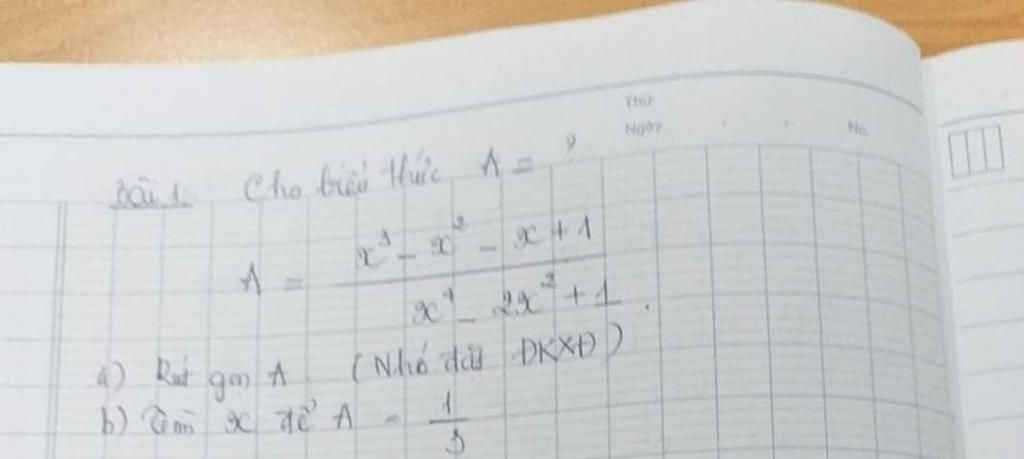 Thứ
Ngày No.
Bài 1. Cho biểu thức A =
A = \frac{x^3 - x^2 - x + 1}{x^4 - 2x^2 + 1}.
a) Rút gọn A. (Nhớ đặt ĐKXĐ)
b) Tìm x để A = \frac{1}{3}